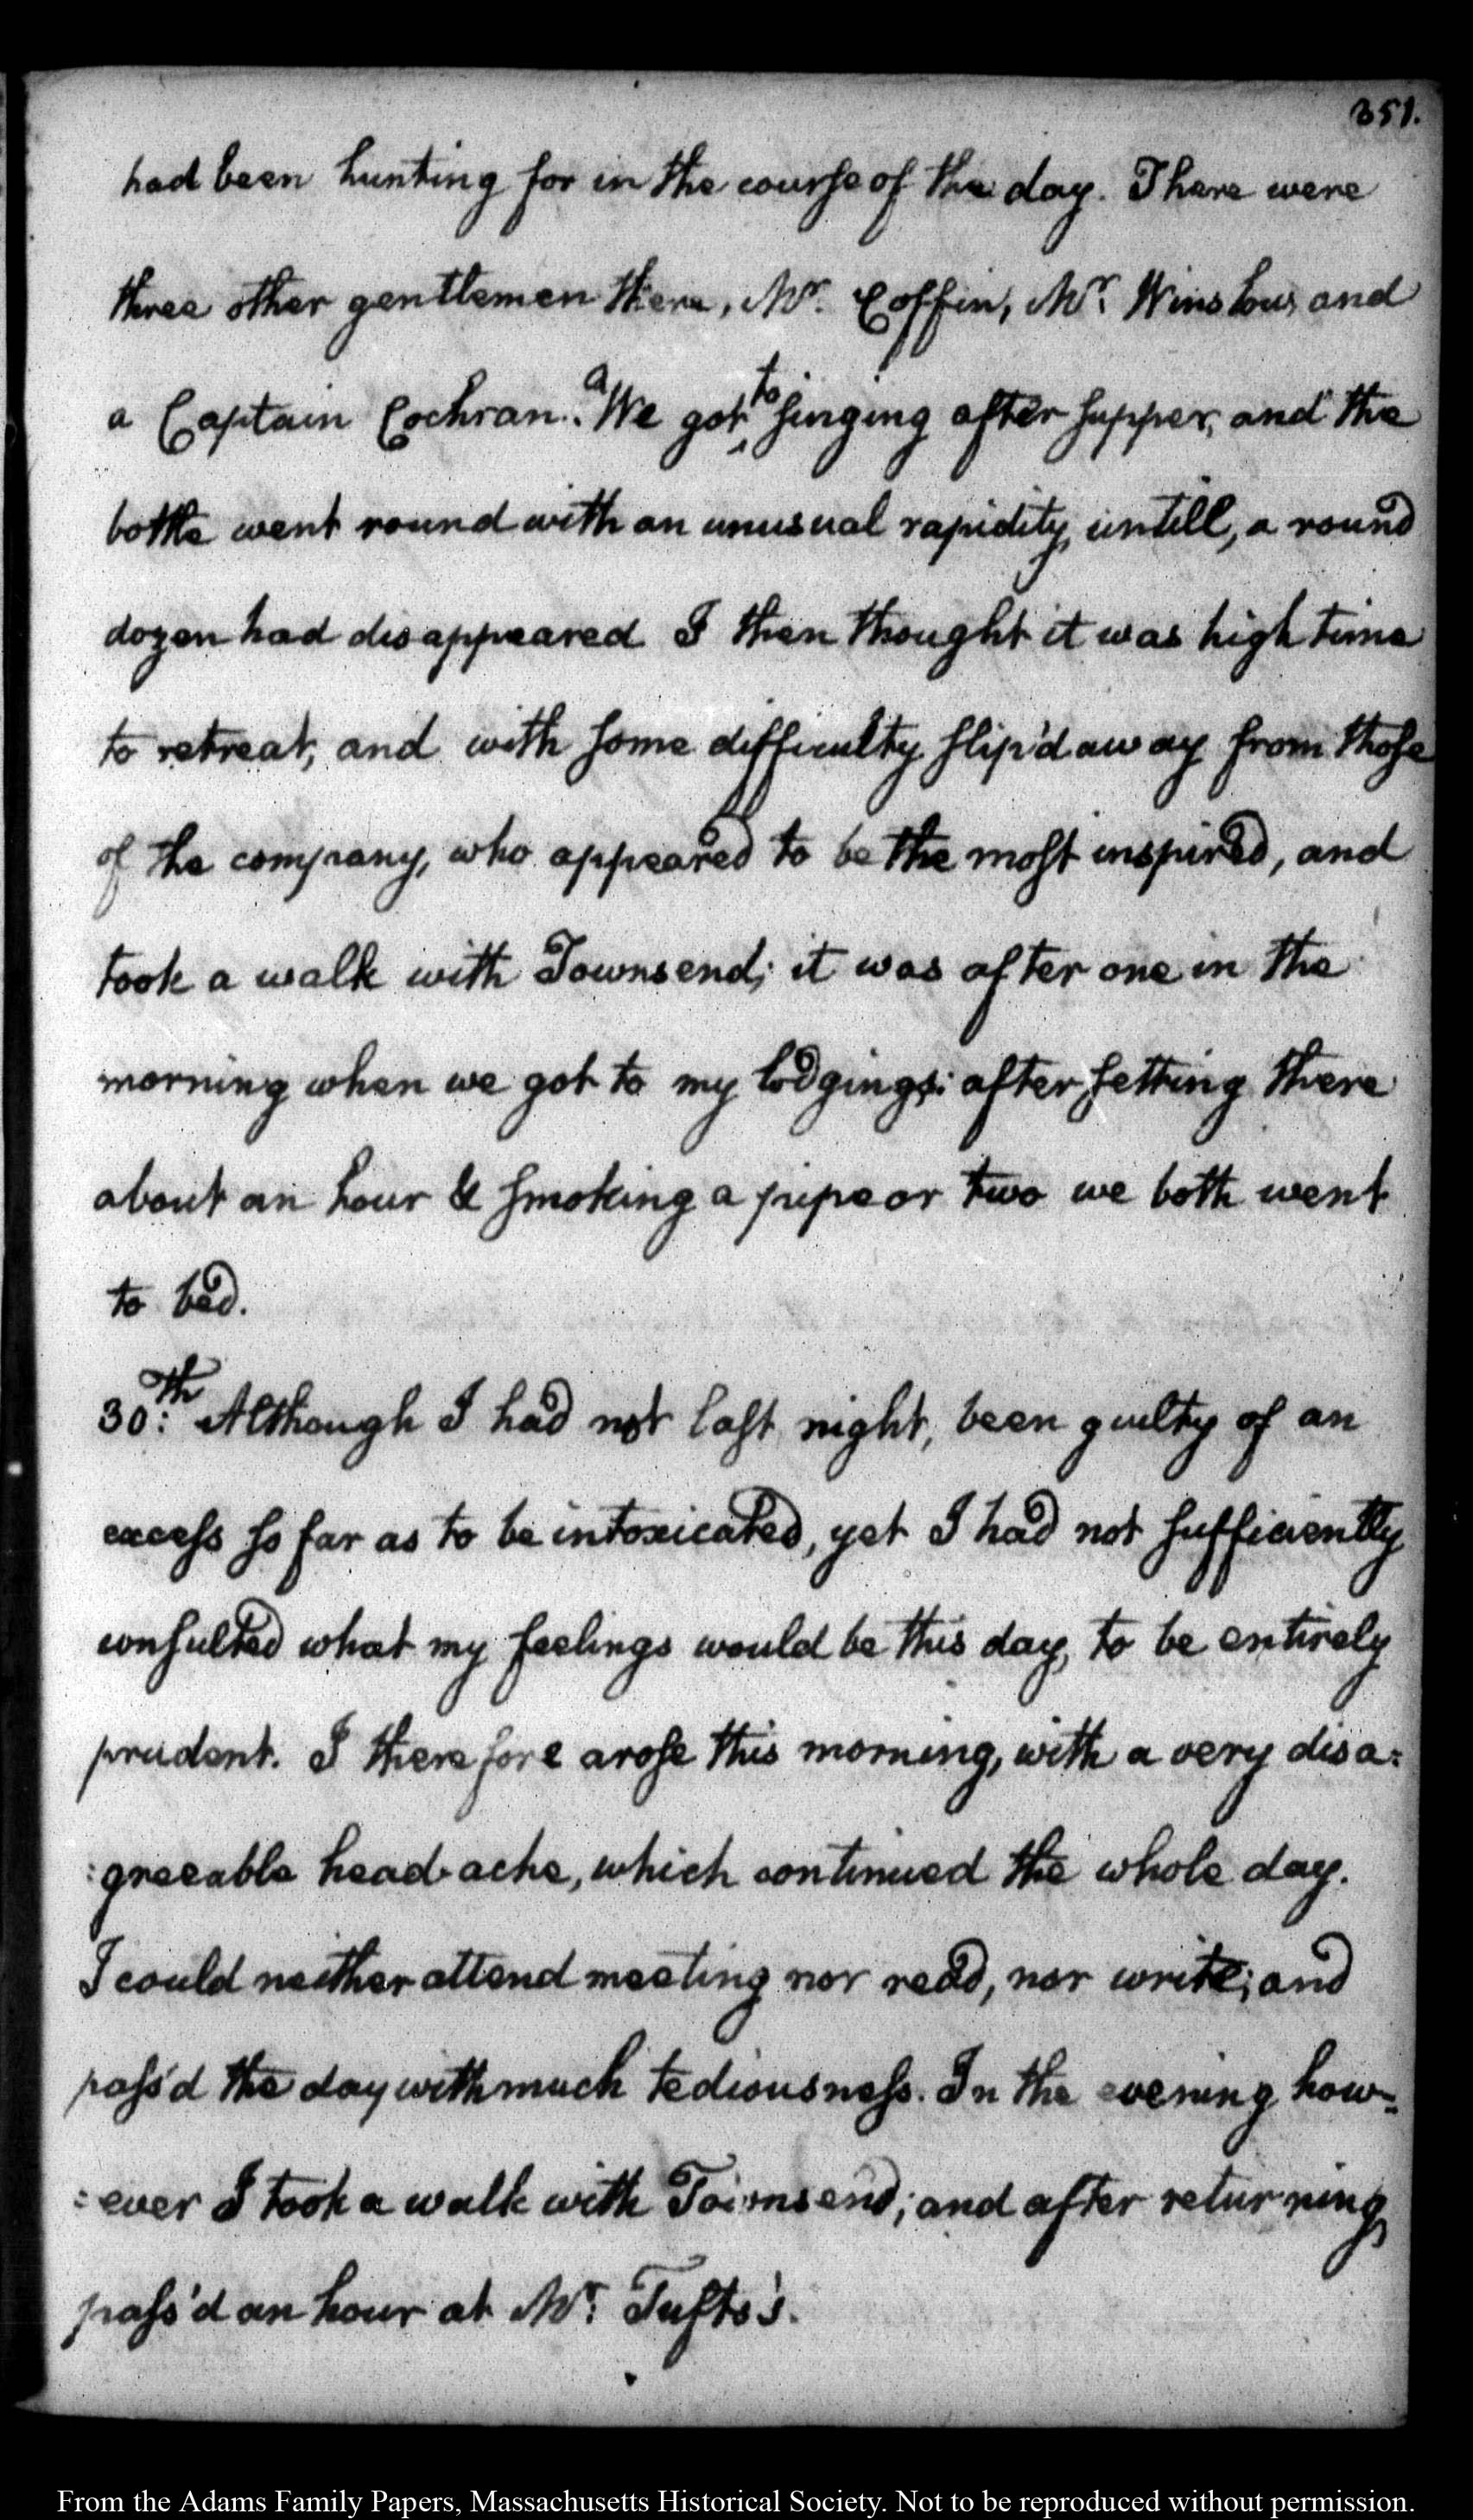 351.
had been hunting for in the course of the day. There were
three other gentlemen there, Mr. Coffin, Mr. Winslow, and
a Captain Cochran.a We got to singing after supper, and the
bottle went round with an unusual rapidity, untill, a round
dozen had disappeared I then thought it was high time
to retreat, and with some difficulty slip'd away from those
of the company, who appeared to be the most inspired, and
took a walk with Townsend; it was after one in the
morning when we got to my lodgings: after setting there
about an hour & smoking a pipe or two we both went
to bed.
30th: Although I had not last night, been guilty of an
excess so far as to be intoxicated, yet I had not sufficiently
consulted what my feelings would be this day, to be entirely
prudent. I therefore arose this morning, with a very disa:
:greeable head-ache, which continued the whole day.
I could neither attend meeting nor read, nor write; and
pass'd the day with much tediousness. In the evening how=
=ever I took a walk with Townsend; and after returning,
pass'd an hour at Mr. Tufts's.
From the Adams Family Papers, Massachusetts Historical Society. Not to be reproduced without permission.